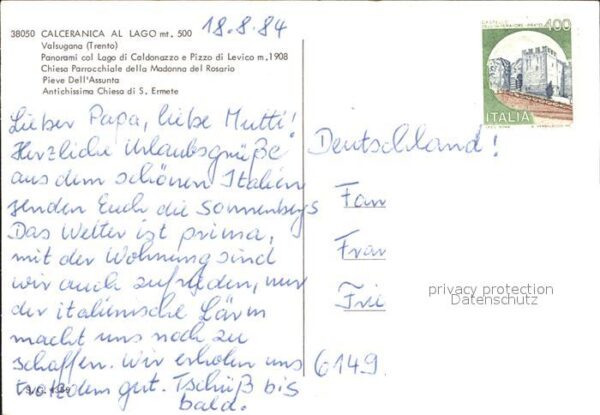 38050 CALCERANICA AL LAGO mt. 500
Valsugana (Trento)
Panorami col Lago di Caldonazzo e Pizzo di Levico m. 1908
Chiesa Parrocchiale della Madonna del Rosario
Pieve Dell'Assunta
Antichissima Chiesa di S. Ermete
18.8.84
CASTELLO
DELL'IMPERATORE-PRATO
400
ITALIA
Lieber Papa, liebe Mutti!
Herzliche Urlaubsgrüße
aus dem schönen Italien
senden Euch die Sonnenbergs
Das Wetter ist prima,
mit der Wohnung sind
wir auch zufrieden, nur
der italienische Lärm
macht uns noch zu
schaffen. Wir erholen uns
trotzdem gut. Tschüß bis
bald.
Deutschland!
Fam
Frar
Frie
6149
privacy protection
Datenschutz